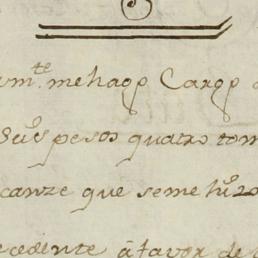 mte. me hago Cargo
Sus pesos quatro tom
canze que seme hizo
cedente á favor de